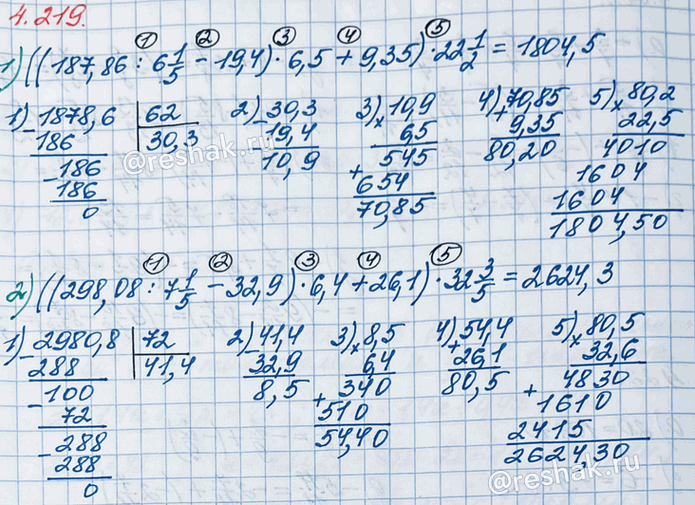 4.219.
① ② ③ ④ ⑤
1) ((187,86 : 6 1/5 − 19,4) · 6,5 + 9,35) · 22 1/2 = 1804,5
1) 1878,6 | 62 2) 30,3 3) 10,9 4) 70,85 5) 80,2
− 186 | 30,3 − 19,4 × 65 + 9,35 × 22,5
186 10,9 545 80,20 4010
− 186 + 654 1604
0 70,85 1604
1804,50
① ② ③ ④ ⑤
2) ((298,08 : 7 1/5 − 32,9) · 6,4 + 26,1) · 32 3/5 = 2624,3
1) 2980,8 | 72 2) 41,4 3) 8,5 4) 54,4 5) 80,5
− 288 | 41,4 − 32,9 × 64 + 26,1 × 32,6
100 8,5 340 80,5 4830
− 72 + 510 + 1610
288 54,40 2415
− 288 2624,30
0
©reshak.ru
©reshak.ru
©reshak.ru